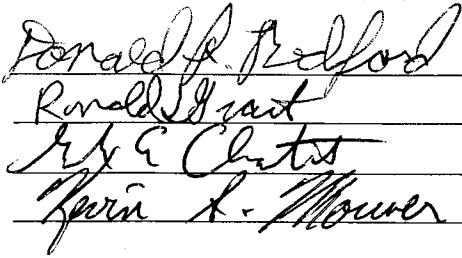 Donald R. Bedford
Ronald S Grant
E
Kevin A. Mower